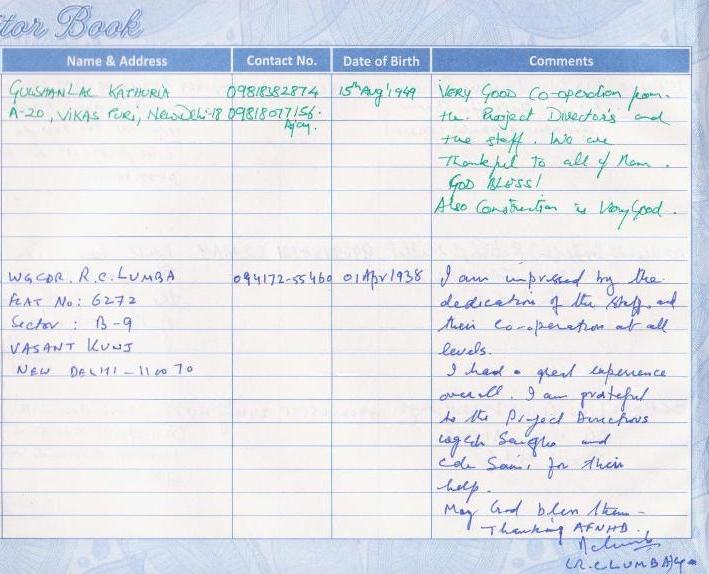 tor Book
Name & Address Contact No. Date of Birth Comments
GULSHAN LAL KATHURIA 09818382874 15th Aug 1949 VERY GOOD Co-operation from
A-20, VIKAS PURI, New Delhi-18 09818077156. the Project Directors and
Ajay. the staff. We are
Thankful to all of them.
GOD BLESS!
Also Construction is Very Good.
WGCDR. R.C. LUMBA 094172-55460 01 Apr 1938 I am impressed by the
FLAT No: 6272 dedication of the staff, and
Sector : B-9 their co-operation at all
VASANT KUNJ levels.
NEW DELHI-110070 I had a great experience
overall. I am grateful
to the Project Directors
wgcdr Sangha and
Cdr Saini for their
help.
May God bless them -
Thanking AFNHB.
(R.C LUMBA)